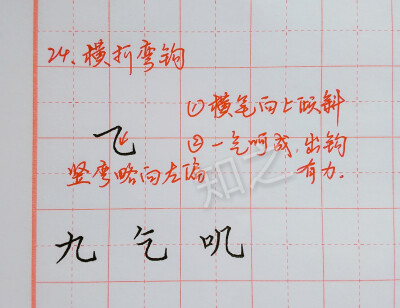 24、横折弯钩
①横笔向上倾斜
②一气呵成,出钩
有力。
竖弯略向左偏
九乞叽
知之